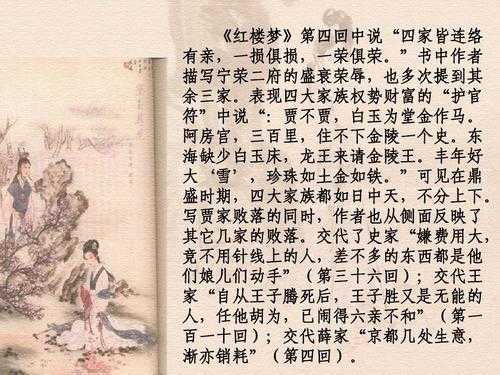 《红楼梦》第四回中说“四家皆连络
有亲，一损俱损，一荣俱荣。”书中作者
描写宁荣二府的盛衰荣辱，也多次提到其
余三家。表现四大家族权势财富的“护官
符”中说“：贾不贾，白玉为堂金作马。
阿房宫，三百里，住不下金陵一个史。东
海缺少白玉床，龙王来请金陵王。丰年好
大‘雪’，珍珠如土金如铁。”可见在鼎
盛时期，四大家族都如日中天，不分上下。
写贾家败落的同时，作者也从侧面反映了
其它几家的败落。交代了史家“嫌费用大，
竟不用针线上的人，差不多的东西都是他
们娘儿们动手”（第三十六回）；交代王
家“自从王子腾死后，王子胜又是无能的
人，任他胡为，已闹得六亲不和”（第一
百一十回）；交代薛家“京都几处生意，
渐亦销耗”（第四回）．